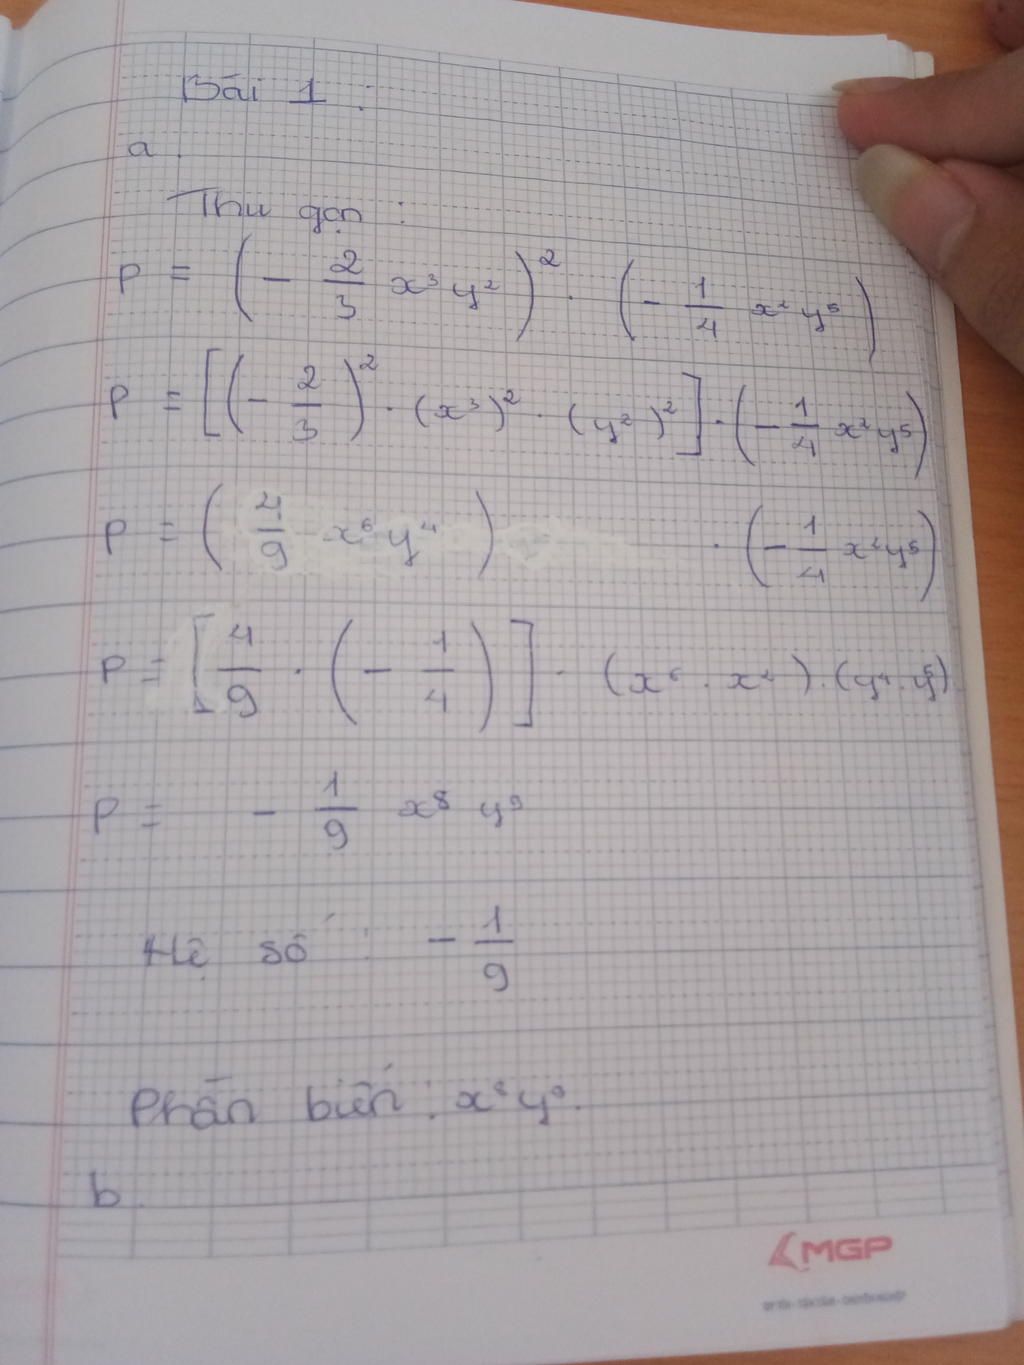 Bài 1 :
a.
Thu gọn :
P = (- 2/3 x³ y²)² . (- 1/4 x² y⁵)
P = [(- 2/3)² . (x³)² . (y²)²] . (- 1/4 x² y⁵)
P = (4/9 x⁶ y⁴) . (- 1/4 x² y⁵)
P = [4/9 . (- 1/4)] . (x⁶ . x²) . (y⁴ . y⁵)
P = - 1/9 x⁸ y⁹
Hệ số : - 1/9
Phần biến : x⁸ y⁹.
b.
MGP